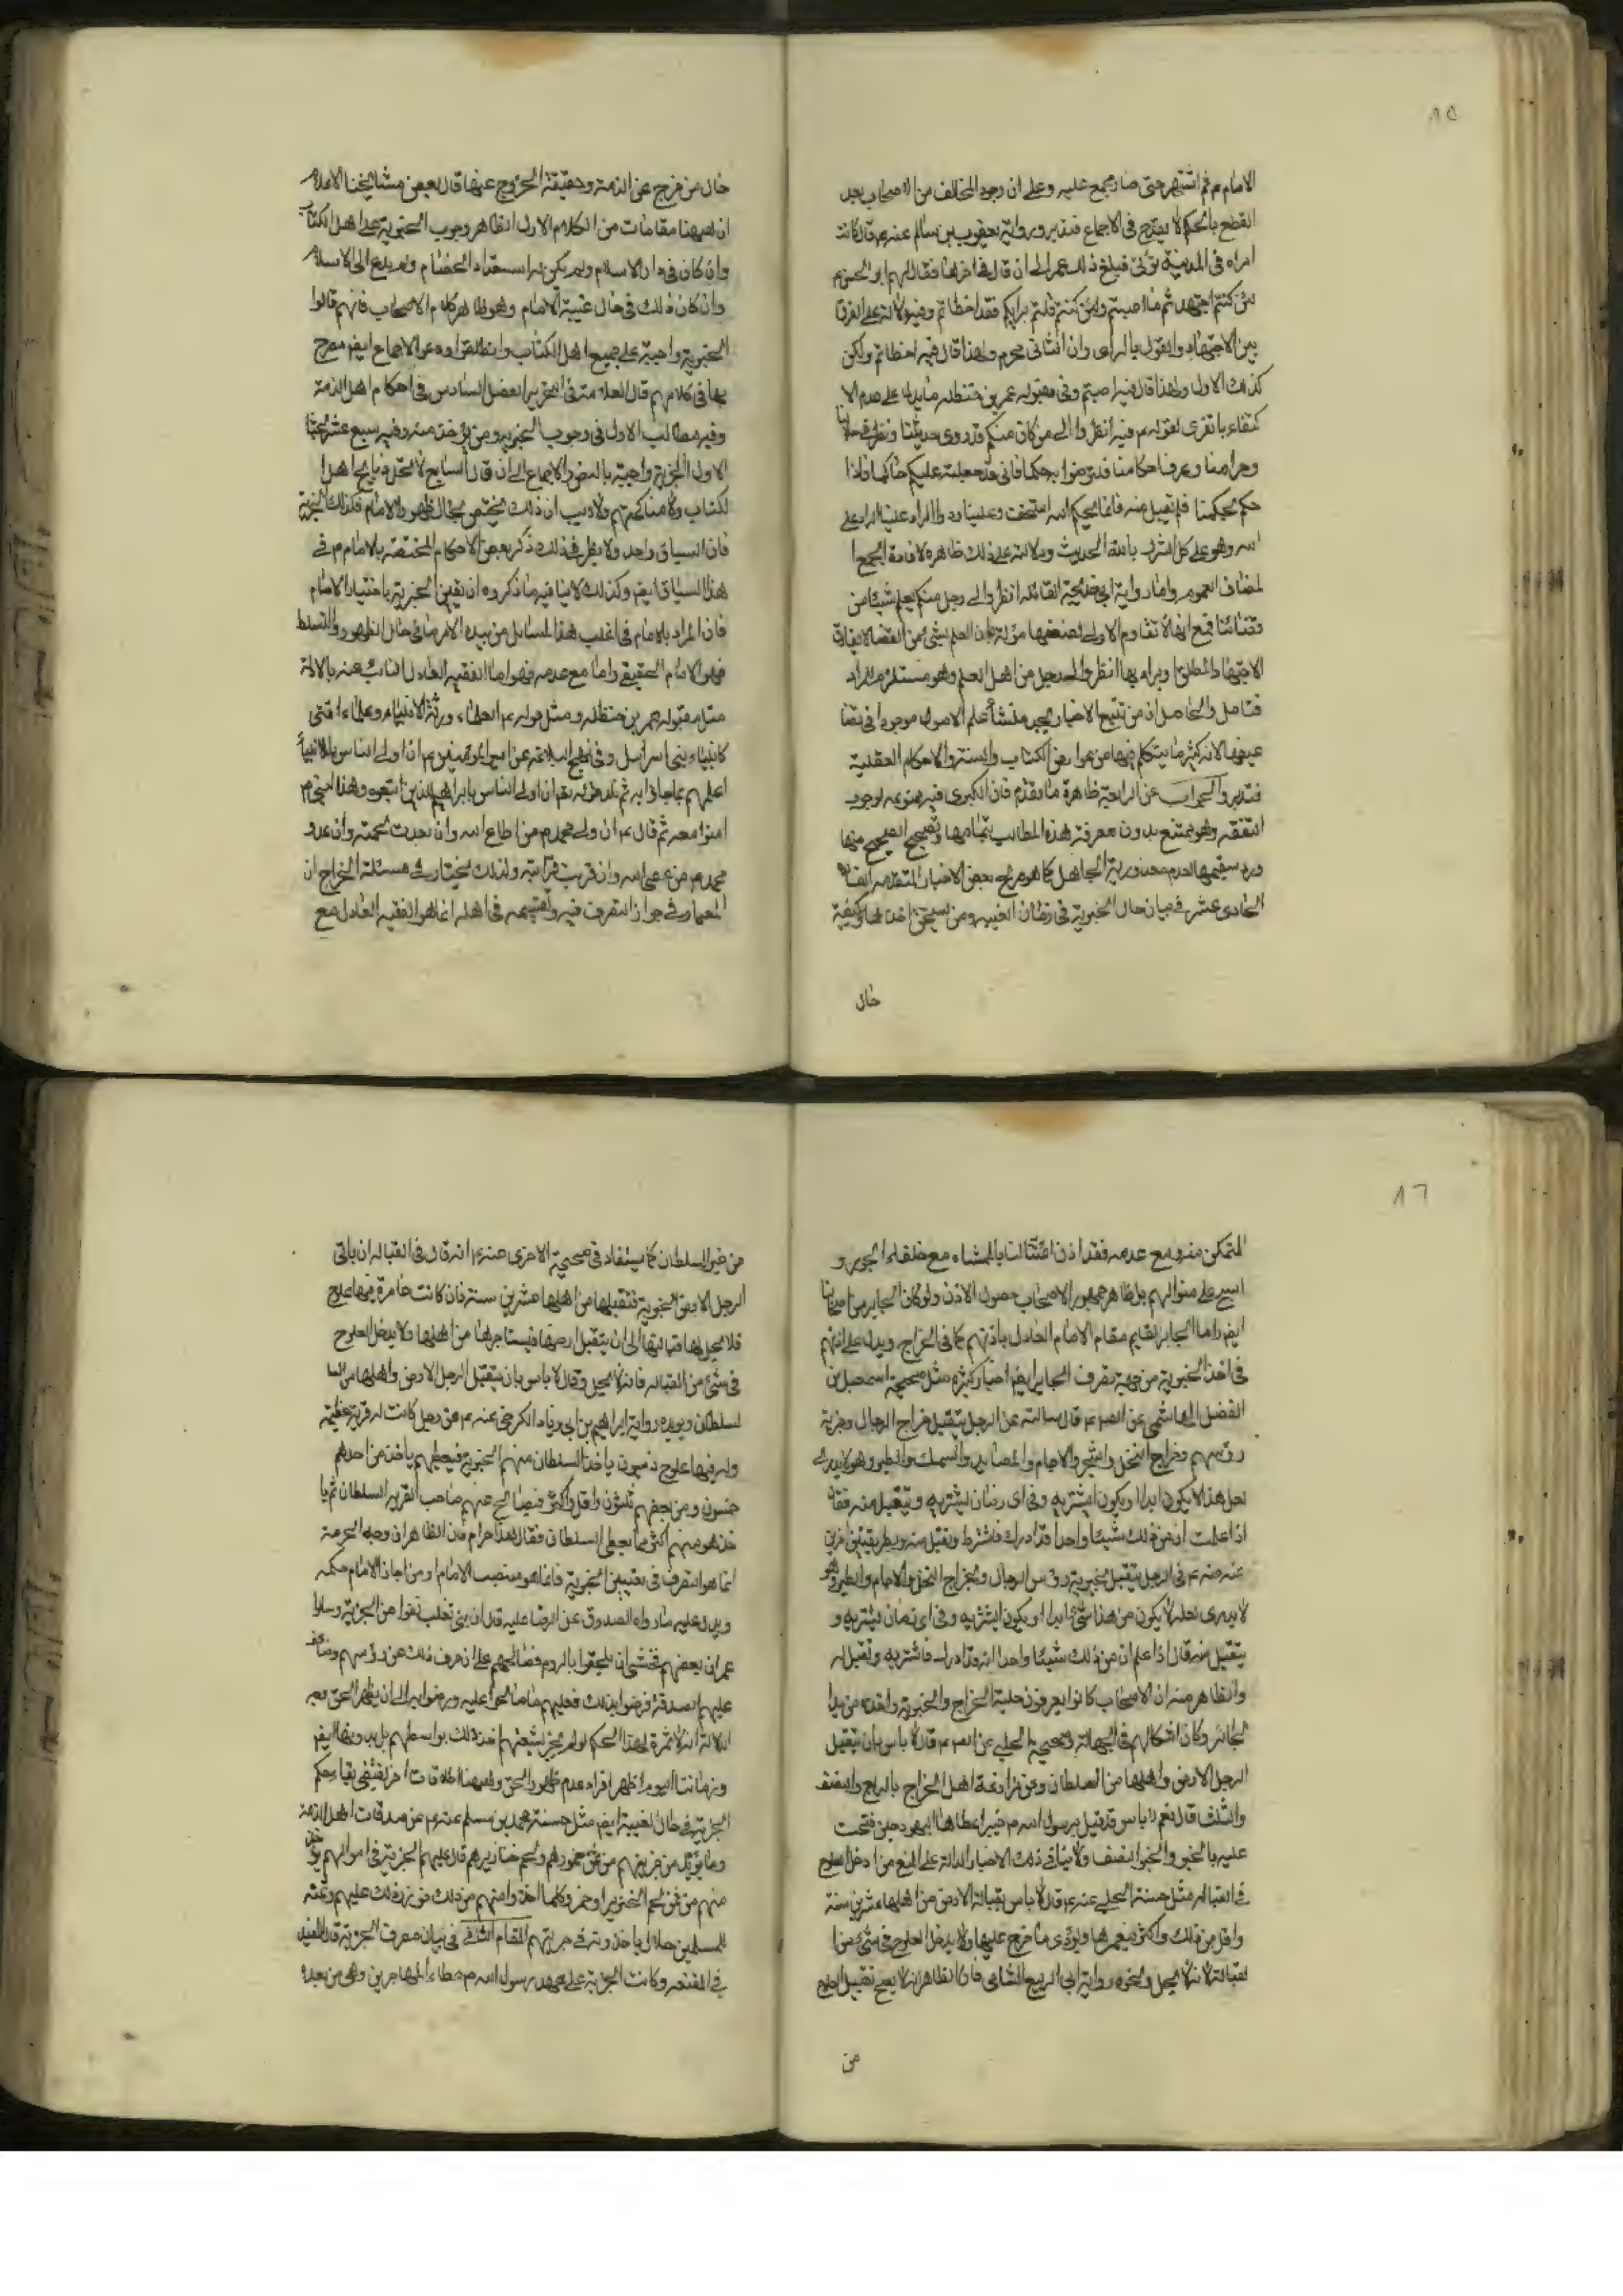 ١٥
الامام م ثم اشتهر حتى صار مجمع عليه وعلى ان وجود المخالف من الاصحاب بعد
القطع بالحكم لا يقدح في الاجماع فتدبر ورواية يعقوب بن سالم عنه م قال كانت
امراة في المدينة تؤتى فبلغ ذلك عمر الى ان قال في اخرها فقال لهم ابو الحسن م
لئن كنتم اجتهدتم ما اصبتم ولئن كنتم قلتم برايكم فقد اخطاتم وفيه دلالة على الفرق
بين الاجتهاد والقول بالراى وان الثاني محرم ولهذا قال فيه اخطاتم ولكن
كذلك الاول ولهذا قال فيه اصبتم وفي مقبوله عمر بن حنظله ما يدل على عدم الا
كتفاء بالتجزى لقوله م فيه انظروا الى من كان منكم قد روى حديثنا ونظر في حلالنا
وحرامنا وعرف احكامنا فترضوا به حكما فاني قد جعلته عليكم حاكما فاذا
حكم بحكمنا فلم تقبل منه فانما بحكم الله استخف وعلينا رد والراد علينا الراد على
الله وهو على كل الشرك بالله الحديث ودلالته على ذلك ظاهرة لافادة الجمع ا
لمضاف العموم واما رواية ابي خديجة القائله انظروا الى رجل منكم يعلم شيئا من
قضائنا فمع انها لا تقاوم الاولى لضعفها مؤلة بان العلم بشئ من القضا لا ينفك
الاجتهاد المطلق ويراد بها انظروا الى رجل من اهل العلم وهو مستلزم للمراد
فتامل والحاصل ان من تتبع الاخبار يجد منشأ علم الاصول موجودا في تضا
عيفها لانه كثيرا ما يتكلم فيها من عوارض الكتاب والسنة والاحكام العقلية
فتدبر والجواب عن الرابعة ظاهرة مما تقدم فان الكبرى فيه ممنوعه لوجوب
التفقه وهو ممتنع بدون معرفة هذه المطالب بتمامها وتصحيح الصحيح منها
ورد سقيمها لعدم معذورية الجاهل كما هو صريح بعض الاخبار المتقدمه ايضا
الحادي عشر في بيان حال الجزية في زمان الغيبه ومن يستحق اخذها وكيفية
حال
حال من خرج عن الذمة وحقيقة الخروج عنها قال بعض مشايخنا الاعلام
ان ههنا مقامات من الكلام الاول الظاهر وجوب الجزية على اهل الكتاب
وان كان في دار الاسلام ولم يكن له استعداد الخصام ولم يدع الى الاسلام
وان كان ذلك في حال غيبة الامام وهو ظاهر كلام الاصحاب فانهم قالوا
الجزية واجبة على جميع اهل الكتاب وانطلقوا ودعوا الاجماع ايضم مصرح
بها في كلامهم قال العلامة في التحرير الفصل السادس في احكام اهل الذمة
وفيه مطالب الاول في وجوب الجزية ومن يؤخذ منه وفيه سبع عشر بحثا
الاول الجزية واجبة بالنص والاجماع الى ان قال السابع لا تحل ذبايح اهل ا
لكتاب ولا مناكحتهم ولا ريب ان ذلك مختص بحال ظهور الامام فكذلك الجزية
فان السياق واحد ولا يضر في ذلك ذكر بعض الاحكام المختصه بالامام م في
هذا السياق ايضم وكذلك لا ينافيه ما ذكروه ان تعيين الجزية باختيار الامام
فان المراد بالامام في اغلب هذا المسائل من بيده الامر ما في حال الظهور والتسلط
فهو الامام الحقيقي واما مع عدمه فهو اما الفقيه العادل النائب عنه بالادلة
مثل مقبوله عمر بن حنظله ومثل قوله م العلماء ورثة الانبياء وعلماء امتي
كانبياء بني اسرائيل وفي نهج البلاغه عن امير المؤمنين م ان اولى الناس بالانبيأ
اعلمهم بما جاؤا به ثم تلا قوله تعم ان اولى الناس بابراهيم للذين اتبعوه وهذا النبي م
امنوا معه ثم قال م ان ولى محمد م من اطاع الله وان بعدت لحمته وان عدو
محمد م من عصى الله وان قربت قرابته ولذلك نختار في مسئلة الخراج ان
المعيار في جواز التصرف فيه وتقسيمه في اهله انما هو الفقيه العادل مع
١٦
المتمكن منه ومع عدمه فقد اذن ائمتنا لنا بالمشاء مع خلفاء الجور و
السير على منوالهم بل ظاهر جمهور الاصحاب حصول الاذن ولو كان الجاير من اصحابنا
ايضم واما الجاير يقايم مقام الامام العادل باذنهم كما في الخراج ويدل على انهم
في اخذ الجزية من جهة تصرف الجاير ايضم اخبار كثيره مثل صحيحة اسمعيل بن
الفضل الهاشمي عن الصم م قال سالته عن الرجل يتقبل خراج الرجال وجزية
رؤسهم وخراج النخل والشجر والاجام والمصايد والسمك والطير وهو لا يدرى
لعل هذا لا يكون ابدا او يكون ايشتريه وفي اى زمان يشتريه ويتقبل منه فقال
اذا علمت ان من ذلك شيئا واحدا قد ادرك فاشتره وتقبل منه وبطريقين اخرين
عنه عنه م في الرجل يتقبل بجزية رؤس الرجال وبخراج النخل والاجام والطير وهو
لا يدرى لعله لا يكون من هذا شئ ابدا او يكون ايشتريه وفي اى زمان يشتريه و
يتقبل منه قال اذا علم ان من ذلك شيئا واحدا انه قد ادرك فاشتريه وتقبل له
والظاهر منه ان الاصحاب كانوا يعرفون حلية الخراج والجزية واخذه من يدا
لجائر وكان اشكالهم في الجهالة وصحيحة الحلبي عن الصم م قال لا باس بان يتقبل
الرجل الارض واهلها من السلطان وعن مزارعة اهل الخراج بالربع والنصف
والثلث قال نعم لا باس قد قبل رسول الله م خيبر اعطاها اليهود حين فتحت
عليه بالخبر والخبر النصف ولا ينافي ذلك الاخبار الدالة على المنع من ادخال العلوج
في القباله مثل حسنة الحلبي عنه م قال لا باس بقبالة الارض من اهلها عشرين سنة
واقل من ذلك واكثر فيعمرها ويؤدى ما خرج عليها ولا يدخل العلوج في شئ من ا
لقبالة لانه لا يحل ونحوه رواية ابي الربيع الشامي فان الظاهر انه لا يصح تقبيل العلوج
من
من غير السلطان كما يستفاد في صحيحة الاخرى عنه م انه قال في القباله ان ياتى
الرجل الارض الخربة فتقبلها من اهلها عشرين سنة فان كانت عامرة فيها علوج
فلا يحل لها قبالتها الى ان يتقبل ارضها فيستاجرها من اهلها ولا يدخل العلوج
في شئ من القباله فانه لا يحل وقال لا باس بان يتقبل الرجل الارض واهلها من ا
لسلطان ويؤيده رواية ابراهيم بن ابي زياد الكرخي عنه م عن رجل كانت له قرية عظيمة
وله فيها علوج ذميون ياخذ السلطان منهم الجزية فيعطيهم ياخذ من احدهم
خمسون ومن بعضهم ثلثون واقل واكثر فيصالح عنهم صاحب القرية السلطان ثم يا
خذ هو منهم اكثر مما يعطى السلطان فقال هذا حرام فان الظاهر ان وجه الحرمة
انما هو التصرف في تعيين الجزية فانما هو منصب الامام او من اجاز الامام حكمه
ويدل عليه ما رواه الصدوق عن الرضا عليه قال ان بني تغلب انفوا من الجزية وسالوا
عمر ان يعفيهم فخشى ان يلحقوا بالروم فصالحهم على ان صرف ذلك عن رؤسهم وضاعف
عليهم الصدقة فرضوا بذلك فعليهم ما صالحوا عليه ورضوا به الى ان يظهر الحق
الدلالة انه لا ثمرة لهذا الحكم لو لم يجز لشيعتهم اخذ ذلك بواسطتهم بل بدونها ايضم
وزماننا اليوم اظهر افراد عدم ظهور الحق وههنا اطلاقات اخر يقتضى بقاء حكم
الجزية في حال الغيبة ايضم مثل حسنة محمد بن مسلم عنه م عن صدقات اهل الذمة
وما يؤخذ من جزيتهم من ثمن خمورهم ولحم خنازيرهم قال عليهم الجزية في اموالهم يؤخذ
منهم من ثمن لحم الخنزير او خمر وكلما اخذوا منهم من ذلك فوزر ذلك عليهم وثمنه
للمسلمين حلال ياخذونه في جزيتهم المقام الثاني في بيان مصرف الجزية قال المفيد
في المقنعه وكانت الجزية على عهد رسول الله م عطاء المهاجرين وهى من بعده